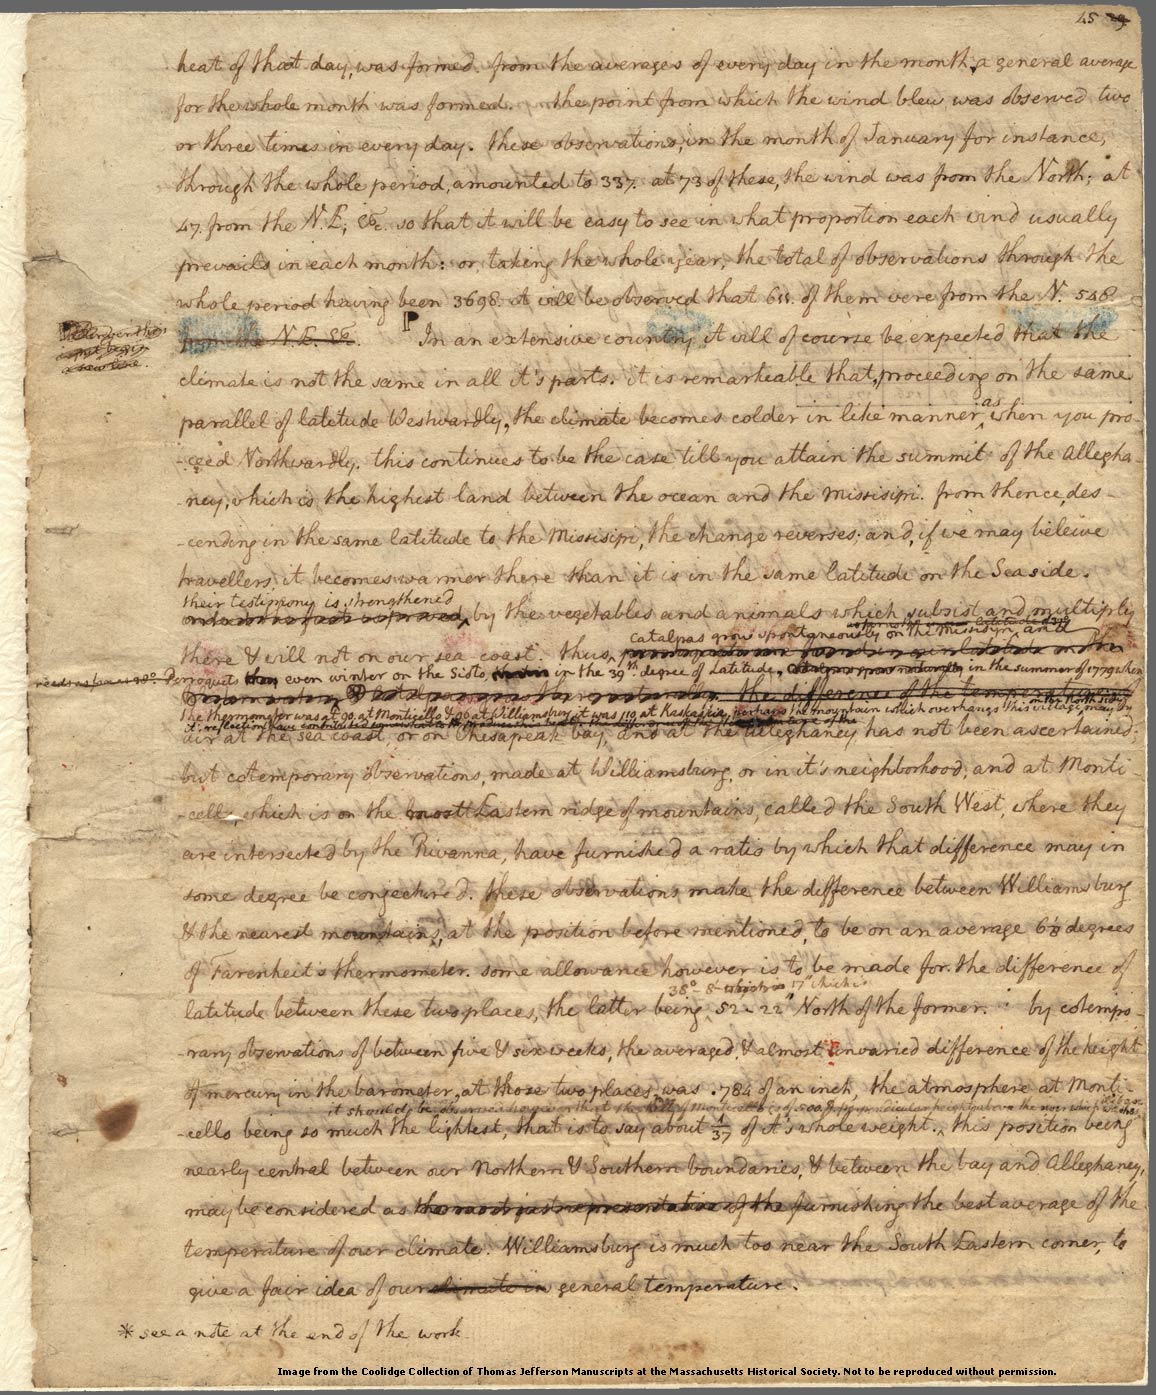 45
heat of that day, was formed. from the averages of every day in the month, a general average
for the whole month was formed. the point from which the wind blew was observed two
or three times in every day. these observations, in the month of January for instance,
through the whole period, amounted to 337. at 73 of these, the wind was from the North; at
47. from the N.E; &c. so that it will be easy to see in what proportion each wind usually
prevails in each month: or, taking the whole year, the total of observations through the
whole period having been 3698. it will be observed that 611. of them were from the N. 548.
from the N.E. &c. P In an extensive country it will of course be expected that the
a new line.
climate is not the same in all it's parts. it is remarkeable that, proceeding on the same
parallel of latitude Westwardly, the climate becomes colder in like manner as when you pro-
-ceed Northwardly. this continues to be the case till you attain the summit of the Allegha-
-ney, which is the highest land between the ocean and the Missisipi. from thence, des-
-cending in the same latitude to the Missisipi, the change reverses; and, if we may beleive
travellers, it becomes warmer there than it is in the same latitude on the Sea side.
their testimony is strengthened
by the vegetables and animals which subsist and multiply
there & will not on our sea coast. thus
catalpas grow spontaneously on the Missisipi, and
reeds as far as 38°. Perroquets even winter on the Sioto, in the 39th. degree of Latitude. in the summer of 1779 when
the difference of the temperature of
the thermometer was at 90. at Monticello & 96 at Williamsburg, it was 110. at Kaskaskia. perhaps the mountain which overhangs this village may by
air at the sea coast, or on Chesapeak bay, and at the Alleghaney has not been ascertained;
but cotemporary observations, made at Williamsburg, or in it's neighborhood, and at Monti-
-cello, which is on the most Eastern ridge of mountains, called the South West, where they
are intersected by the Rivanna, have furnished a ratio by which that difference may in
some degree be conjectured. these observations make the difference between Williamsburg
& the nearest mountains, at the position before mentioned, to be on an average 6⅛ degrees
of Farenheit's thermometer. some allowance however is to be made for the difference of
38°- 8'- 17" which is
latitude between these two places, the latter being 52'- 22" North of the former. by cotempo-
-rary observations of between five & six weeks, the averaged & almost unvaried difference of the height
of mercury in the barometer, at those two places, was .784 of an inch, the atmosphere at Monti-
it should be observed however that the hill of Monticello is of 500. f. perpendicular height above the river which
-cello being so much the lightest, that is to say about 1/37 of it's whole weight. this position being
nearly central between our Northern & Southern boundaries, & between the bay and Alleghaney,
may be considered as the most just representative of the furnishing the best average of the
temperature of our climate. Williamsburg is much too near the South Eastern corner, to
give a fair idea of our climate in general temperature.
* see a note at the end of the work
Image from the Coolidge Collection of Thomas Jefferson Manuscripts at the Massachusetts Historical Society. Not to be reproduced without permission.